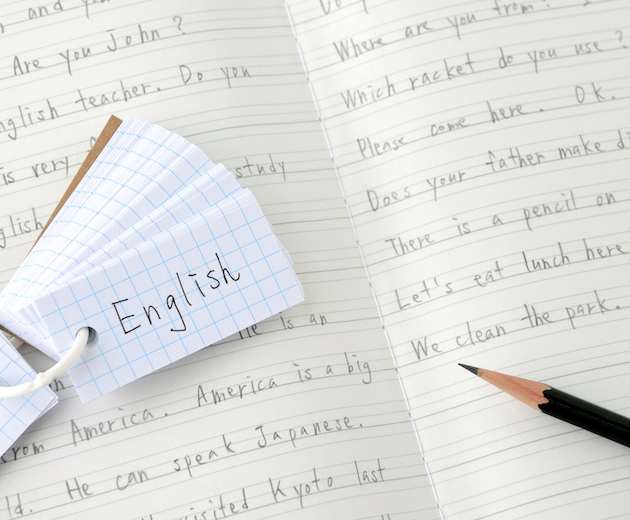 and
Are you John?
English teacher. Do you
is very
study
English
English
He is an
from America. America is a big
ld. He can speak Japanese.
visited Kyoto last
Where are you from?
Which racket do you use?
Please come here. OK.
Does your father make di
There is a pencil on
Let's eat lunch here
We clean the park.